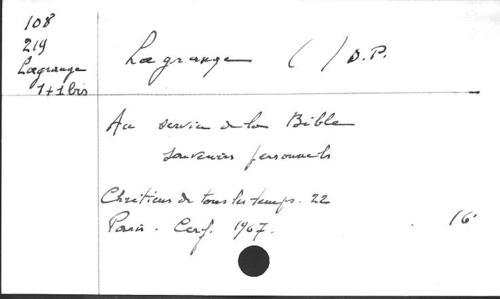 108
219
Lagrange
1+1 bis
Lagrange ( ) O.P.
Au service de la Bible
souvenirs personnels
Chrétiens de tous les temps. 22
Paris. Cerf. 1967.
16